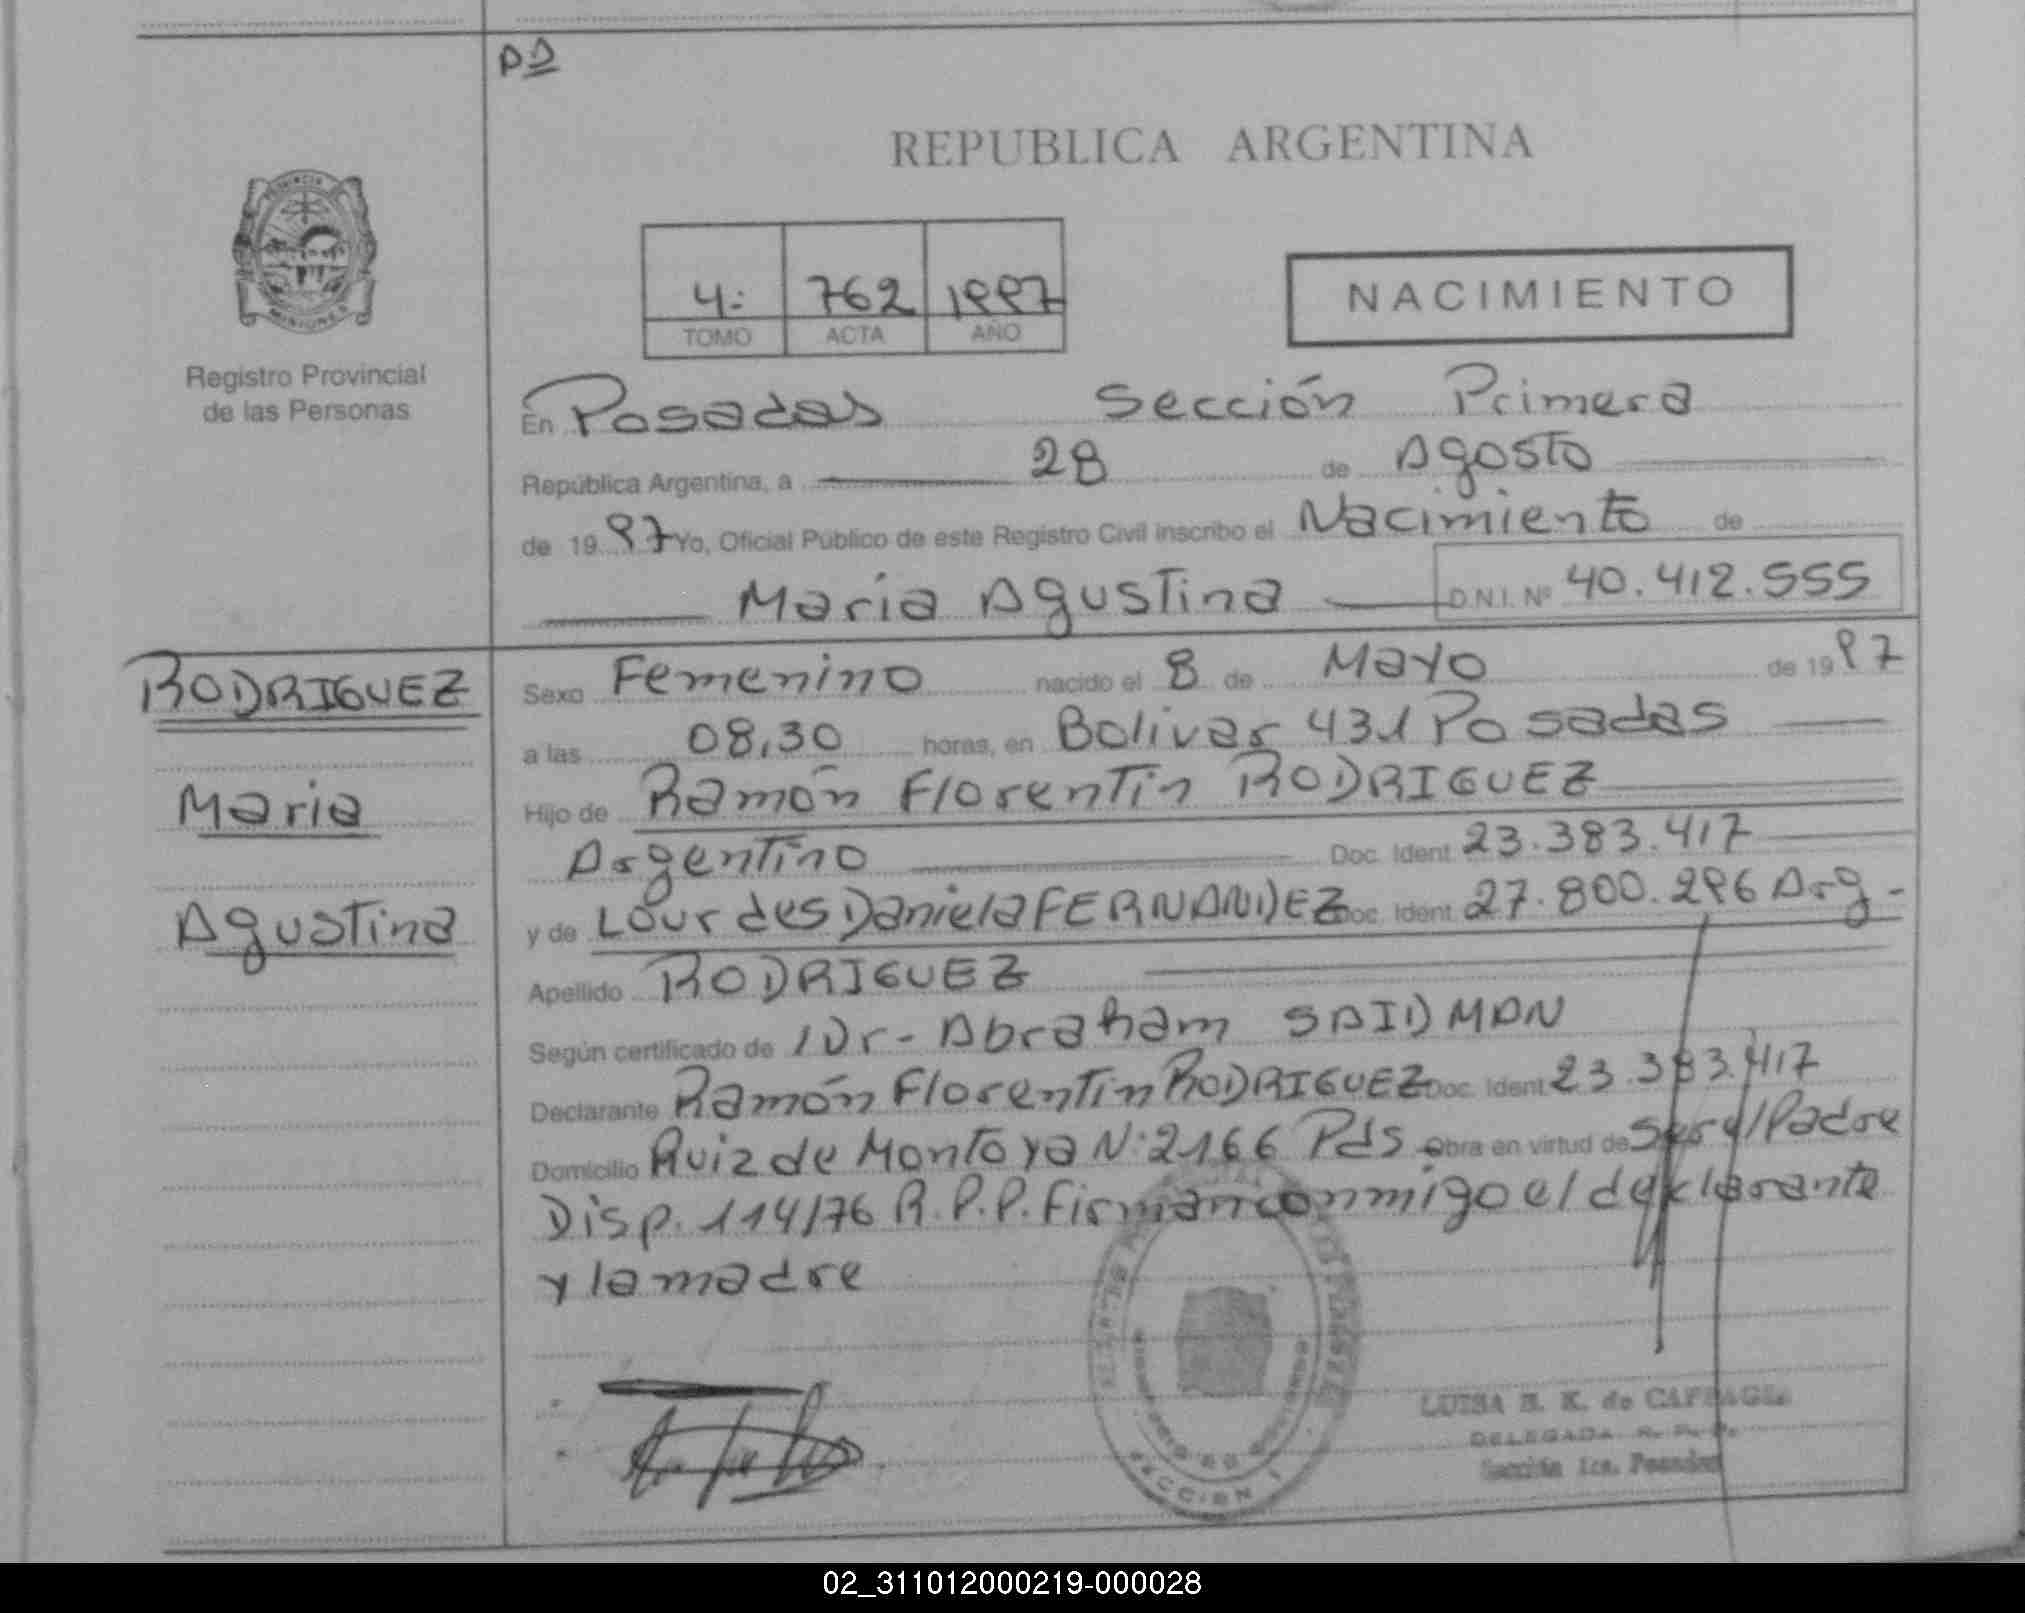 REPUBLICA ARGENTINA
PROVINCIA
MISIONES
Registro Provincial
de las Personas
4: 762 1997
TOMO ACTA AÑO
NACIMIENTO
En Posadas Sección Primera
República Argentina, a 28 de Agosto
de 1997 Yo, Oficial Público de este Registro Civil inscribo el Nacimiento de
María Agustina D.N.I. Nº 40.412.555
RODRIGUEZ
Maria
Agustina
Sexo Femenino nacido el 8 de Mayo de 1997
a las 08,30 horas, en Bolivar 431 Posadas
Hijo de Ramón Florentín RODRIGUEZ
Argentino Doc. Ident. 23.383.417
y de Lourdes Daniela FERNANDEZ Doc. Ident. 27.800.296 Arg-
Apellido RODRIGUEZ
Según certificado de Dr- Abraham SAIDMAN
Declarante Ramón Florentín RODRIGUEZ Doc. Ident. 23.383.417
Domicilio Ruiz de Montoya N:2166 Pds Obra en virtud de ser el Padre
Disp. 114/76 R.P.P. Firman conmigo el declarante
y la madre
SECCION 1
LUISA E. K. de
DELEGADA R. P. P.
Sección 1ra. Posadas
02_311012000219-000028